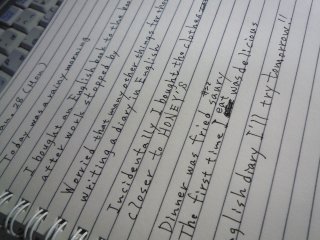 an. 28 (Mon)
Today was a rainy morning
I bought an English book to the
after work stopped by
Worried that many other things for
writing a diary in English
Incidentally I bought the clothes
closer to HONEY'S
Dinner was fried saury
The first time I eat was delicious
nglish diary I'll try tomorrow!!